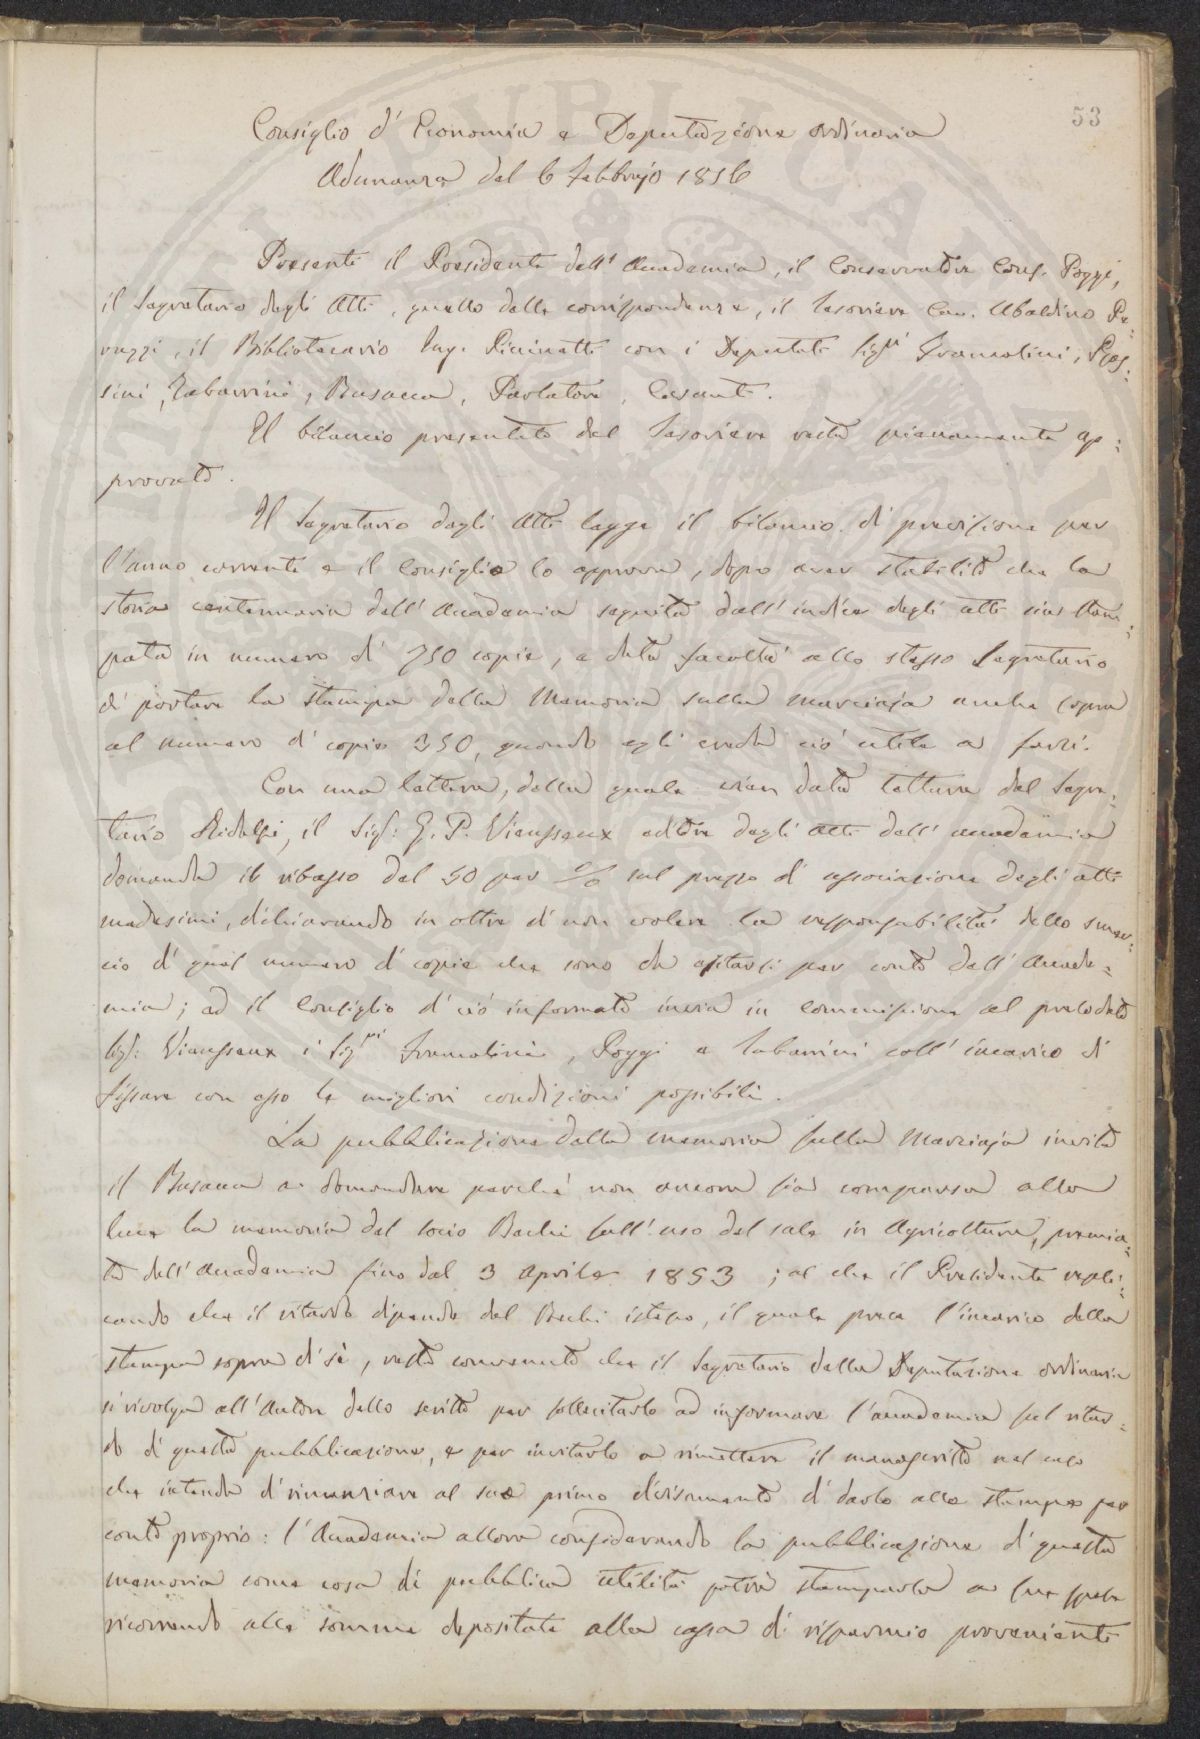 53
Consiglio d'Economia e Deputazione ordinaria
Adunanza del 6 Febbrajo 1856
Presenti il Presidente dell'Accademia, il Conservatore Cons. Poggi,
il Segretario degli Atti, quello delle corrispondenze, il Tesoriere Cav. Ubaldino Pe:
ruzzi, il Bibliotecario Ing. con i Deputati Sigri Franceolini,
sini, Tabarrini, Busacca, Parlatore, Casanti.
Il bilancio presentato dal Tesoriere resta pienamente ap:
provato.
Il Segretario degli Atti legge il bilancio di previsione per
l'anno corrente e il Consiglio lo approva, dopo aver stabilito che la
storia centennaria dell'Accademia seguita dall'indice degli atti sia stam:
pata in numero di 750 copie, e data facoltà allo stesso Segretario
di portare la stampa della Memoria sulla marciaja anche sopra
al numero di copie 250, quando egli creda ciò utile a farsi.
Con una lettera, della quale vien data lettura dal Segre:
tario Ridolfi, il Sigr: G. P. Vieusseux editore degli Atti dell'Accademia
domanda il ribasso del 50 per % sul prezzo d'associazione degli atti
medesimi, dichiarando in oltre di non volere la responsabilità dello smer:
cio di quel numero di copie che sono da esitarsi per conto dell'Accade:
mia; ed il Consiglio di ciò informato invia in commissione al prelodato
Sigr: Vieusseux i Sigri Franceolini, Poggi e Tabarrini coll'incarico di
fissare con esso le migliori condizioni possibili.
La pubblicazione della memoria sulla Marciaja invita
il Busacca a domandare perchè non ancora sia comparsa alla
luce la memoria del socio Bechi sull'uso del sale in Agricoltura, premia:
ta dall'Accademia fino dal 3 Aprile 1853; al che il Presidente repli:
cando che il ritardo dipende dal Bechi istesso, il quale prese l'incarico della
stampa sopra di sè, resta convenuto che il Segretario della Deputazione ordinaria
si rivolga all'Autore dello scritto per sollecitarlo ad informare l'accademia sul ritar:
do di questa pubblicazione, e per invitarlo a rimettere il manoscritto nel caso
che intenda di rinunziare al suo primo divisamento di darlo alle stampe per
conto proprio: l'Accademia allora considerando la pubblicazione di questa
memoria come cosa di pubblica utilità potrà stamparla a sue spese
ricorrendo alle somme depositate alla cassa di risparmio provenienti